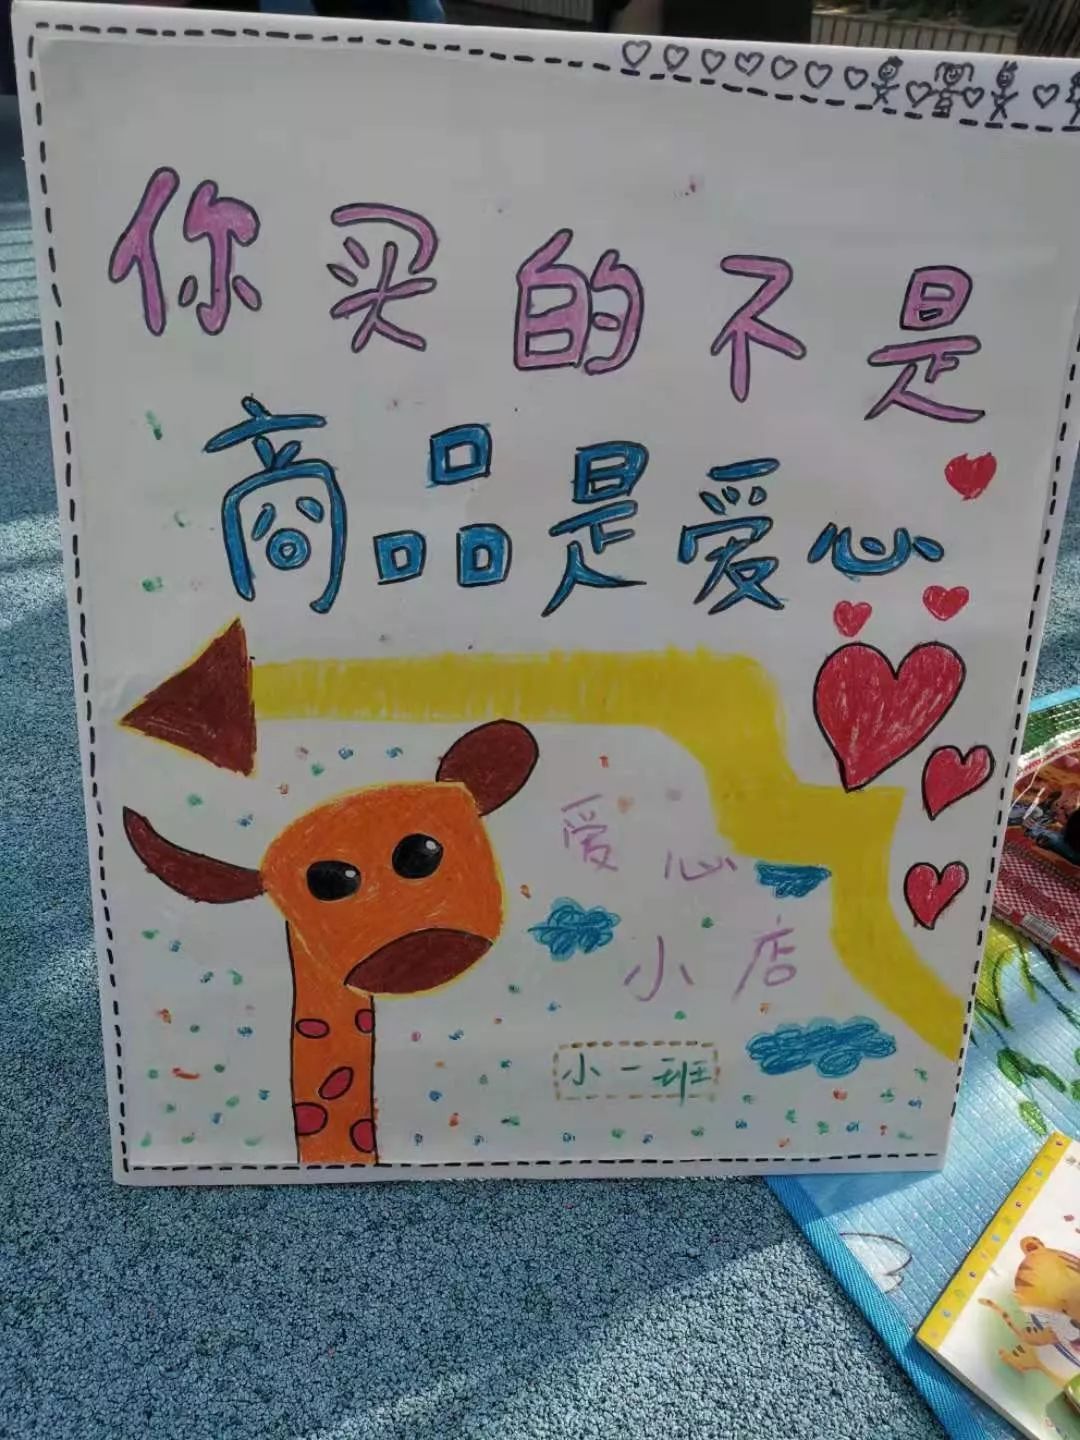 你买的不是
商品是爱心
爱心
小店
小一班